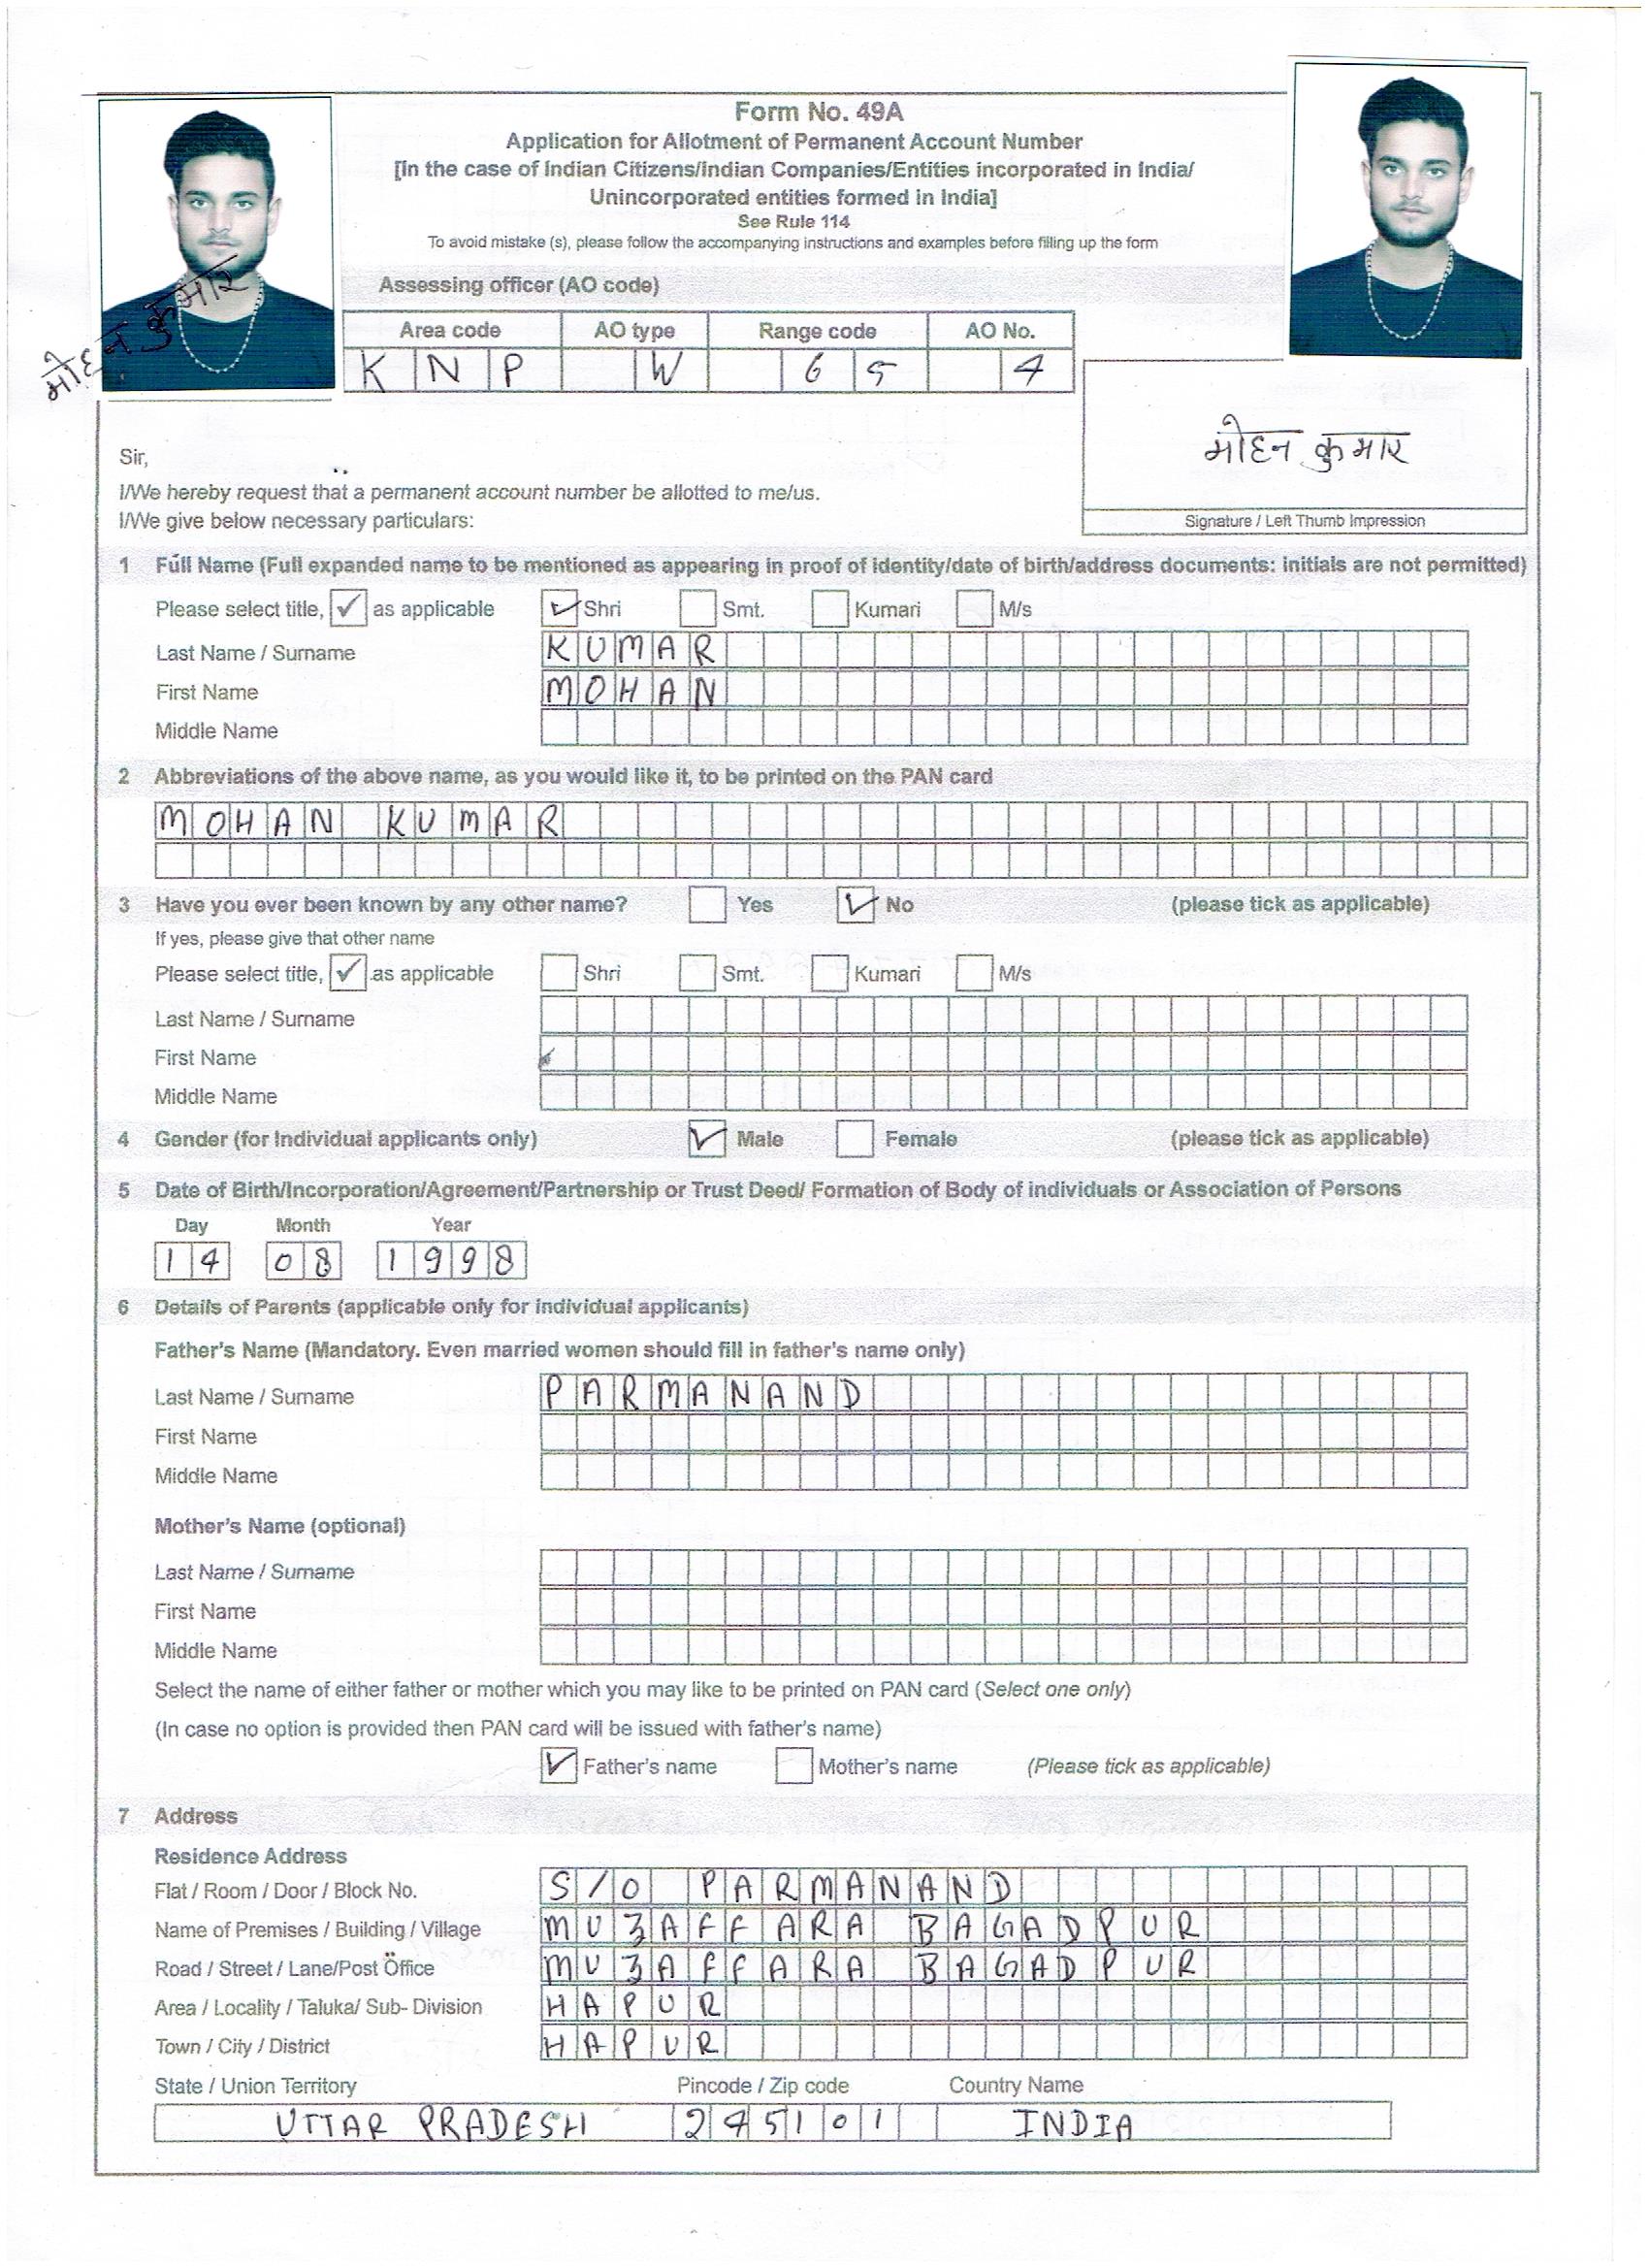 Form No. 49A
Application for Allotment of Permanent Account Number
[In the case of Indian Citizens/Indian Companies/Entities incorporated in India/
Unincorporated entities formed in India]
See Rule 114
To avoid mistake (s), please follow the accompanying instructions and examples before filling up the form
मोहन कुमार
Assessing officer (AO code)
Area code AO type Range code AO No.
KNP W 65 4
मोहन कुमार
Signature / Left Thumb Impression
Sir,
I/We hereby request that a permanent account number be allotted to me/us.
I/We give below necessary particulars:
1 Full Name (Full expanded name to be mentioned as appearing in proof of identity/date of birth/address documents: initials are not permitted)
Please select title, ✓ as applicable ✓ Shri Smt. Kumari M/s
Last Name / Surname KUMAR
First Name MOHAN
Middle Name
2 Abbreviations of the above name, as you would like it, to be printed on the PAN card
MOHAN KUMAR
3 Have you ever been known by any other name? Yes ✓ No (please tick as applicable)
If yes, please give that other name
Please select title, ✓ as applicable Shri Smt. Kumari M/s
Last Name / Surname
First Name
Middle Name
4 Gender (for Individual applicants only) ✓ Male Female (please tick as applicable)
5 Date of Birth/Incorporation/Agreement/Partnership or Trust Deed/ Formation of Body of individuals or Association of Persons
Day Month Year
14 08 1998
6 Details of Parents (applicable only for individual applicants)
Father's Name (Mandatory. Even married women should fill in father's name only)
Last Name / Surname PARMANAND
First Name
Middle Name
Mother's Name (optional)
Last Name / Surname
First Name
Middle Name
Select the name of either father or mother which you may like to be printed on PAN card (Select one only)
(In case no option is provided then PAN card will be issued with father's name)
✓ Father's name Mother's name (Please tick as applicable)
7 Address
Residence Address
Flat / Room / Door / Block No. S/O PARMANAND
Name of Premises / Building / Village MUZAFFARA BAGADPUR
Road / Street / Lane/Post Office MUZAFFARA BAGADPUR
Area / Locality / Taluka/ Sub- Division HAPUR
Town / City / District HAPUR
State / Union Territory Pincode / Zip code Country Name
UTTAR PRADESH 245101 INDIA